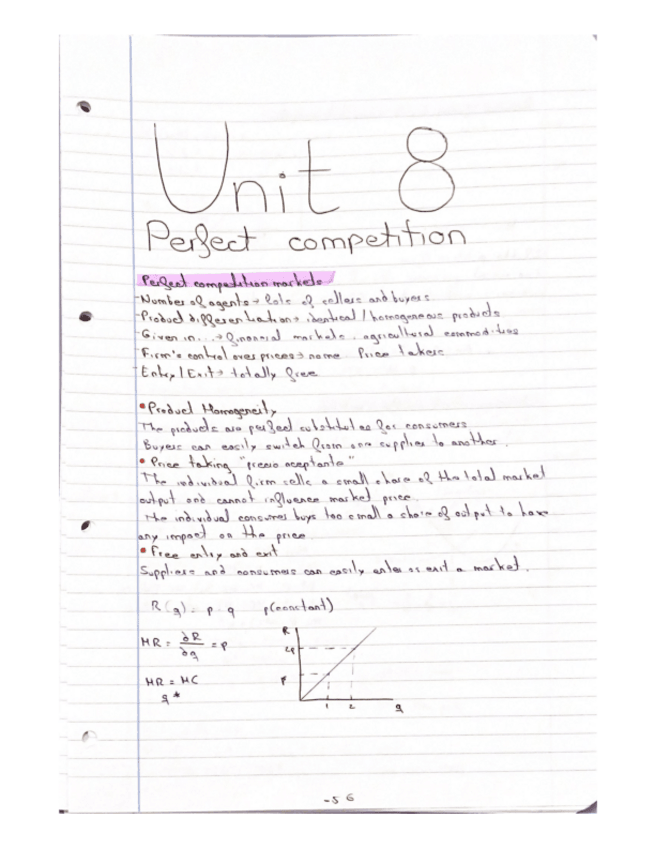 Unit 8
Perfect competition
Perfect competition markets
-Number of agents → lots of sellers and buyers
-Product differentiation → identical / homogeneous products
-Given in... → financial markets, agricultural commodities
-Firm's control over prices → none. Price takers
-Entry / Exit → totally free
• Product Homogeneity
The products are perfect substitutes for consumers
Buyers can easily switch from one supplier to another.
• Price taking "precio aceptante"
The individual firm sells a small share of the total market
output and cannot influence market price.
The individual consumer buys too small a share of output to have
any impact on the price.
• Free entry and exit
Suppliers and consumers can easily enter or exit a market.
R(q) = p · q p(constant)
MR = ∂R/∂q = p
MR = MC
q*
R
2p
p
1 2 q
-56